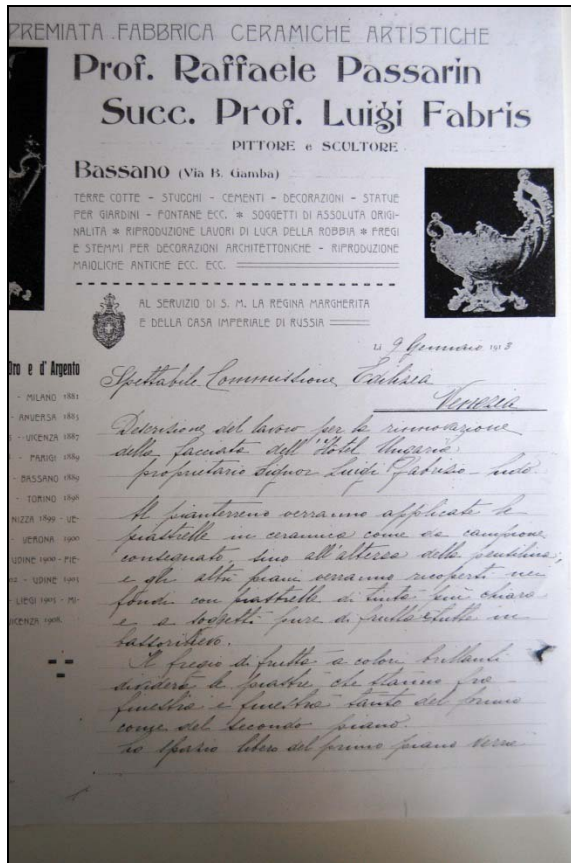 PREMIATA FABBRICA CERAMICHE ARTISTICHE
Prof. Raffaele Passarin
Succ. Prof. Luigi Fabris
PITTORE e SCULTORE
Bassano (Via B. Gamba)
TERRE COTTE - STUCCHI - CEMENTI - DECORAZIONI - STATUE
PER GIARDINI - FONTANE ECC. * SOGGETTI DI ASSOLUTA ORIGI-
NALITA * RIPRODUZIONE LAVORI DI LUCA DELLA ROBBIA * FREGI
E STEMMI PER DECORAZIONI ARCHITETTONICHE - RIPRODUZIONE
MAIOLICHE ANTICHE ECC. ECC.
AL SERVIZIO DI S. M. LA REGINA MARGHERITA
E DELLA CASA IMPERIALE DI RUSSIA
Oro e d'Argento
- MILANO 1881
- ANVERSA 1885
- VICENZA 1887
- PARIGI 1889
- BASSANO 1889
- TORINO 1898
NIZZA 1899 - VE-
VERONA 1900
UDINE 1900 - FIE-
- UDINE 1903
- LIEGI 1905 - MI-
VICENZA 1908.
Li 9 Gennaio 1913
Spettabile Commissione Edilizia
Venezia
Descrizione del lavoro per la rinnovazione
della facciata dell'Hotel Ungaria
proprietario Signor Luigi Fabrizio - Lido.
Al pianterreno verranno applicate le
piastrelle in ceramica come da campione
consegnato, sino all'altezza della pensilina,
e gli altri piani verranno ricoperti nei
fondi con piastrelle di tinta più chiara
e a soggetti pure di frutta tutte in
bassorilievo.
Il fregio di frutta a colori brillanti
dividerà le piastre che stanno fra
finestra e finestra tanto del primo
come del secondo piano.
Lo spazio libero del primo piano verrà